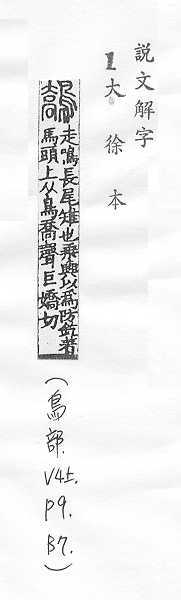 説文解字
大徐本
鷮
走鳴長尾雉也乘輿以爲防釳著
馬頭上从鳥喬聲巨嬌切
(鳥部. V4上. P9. B7.)